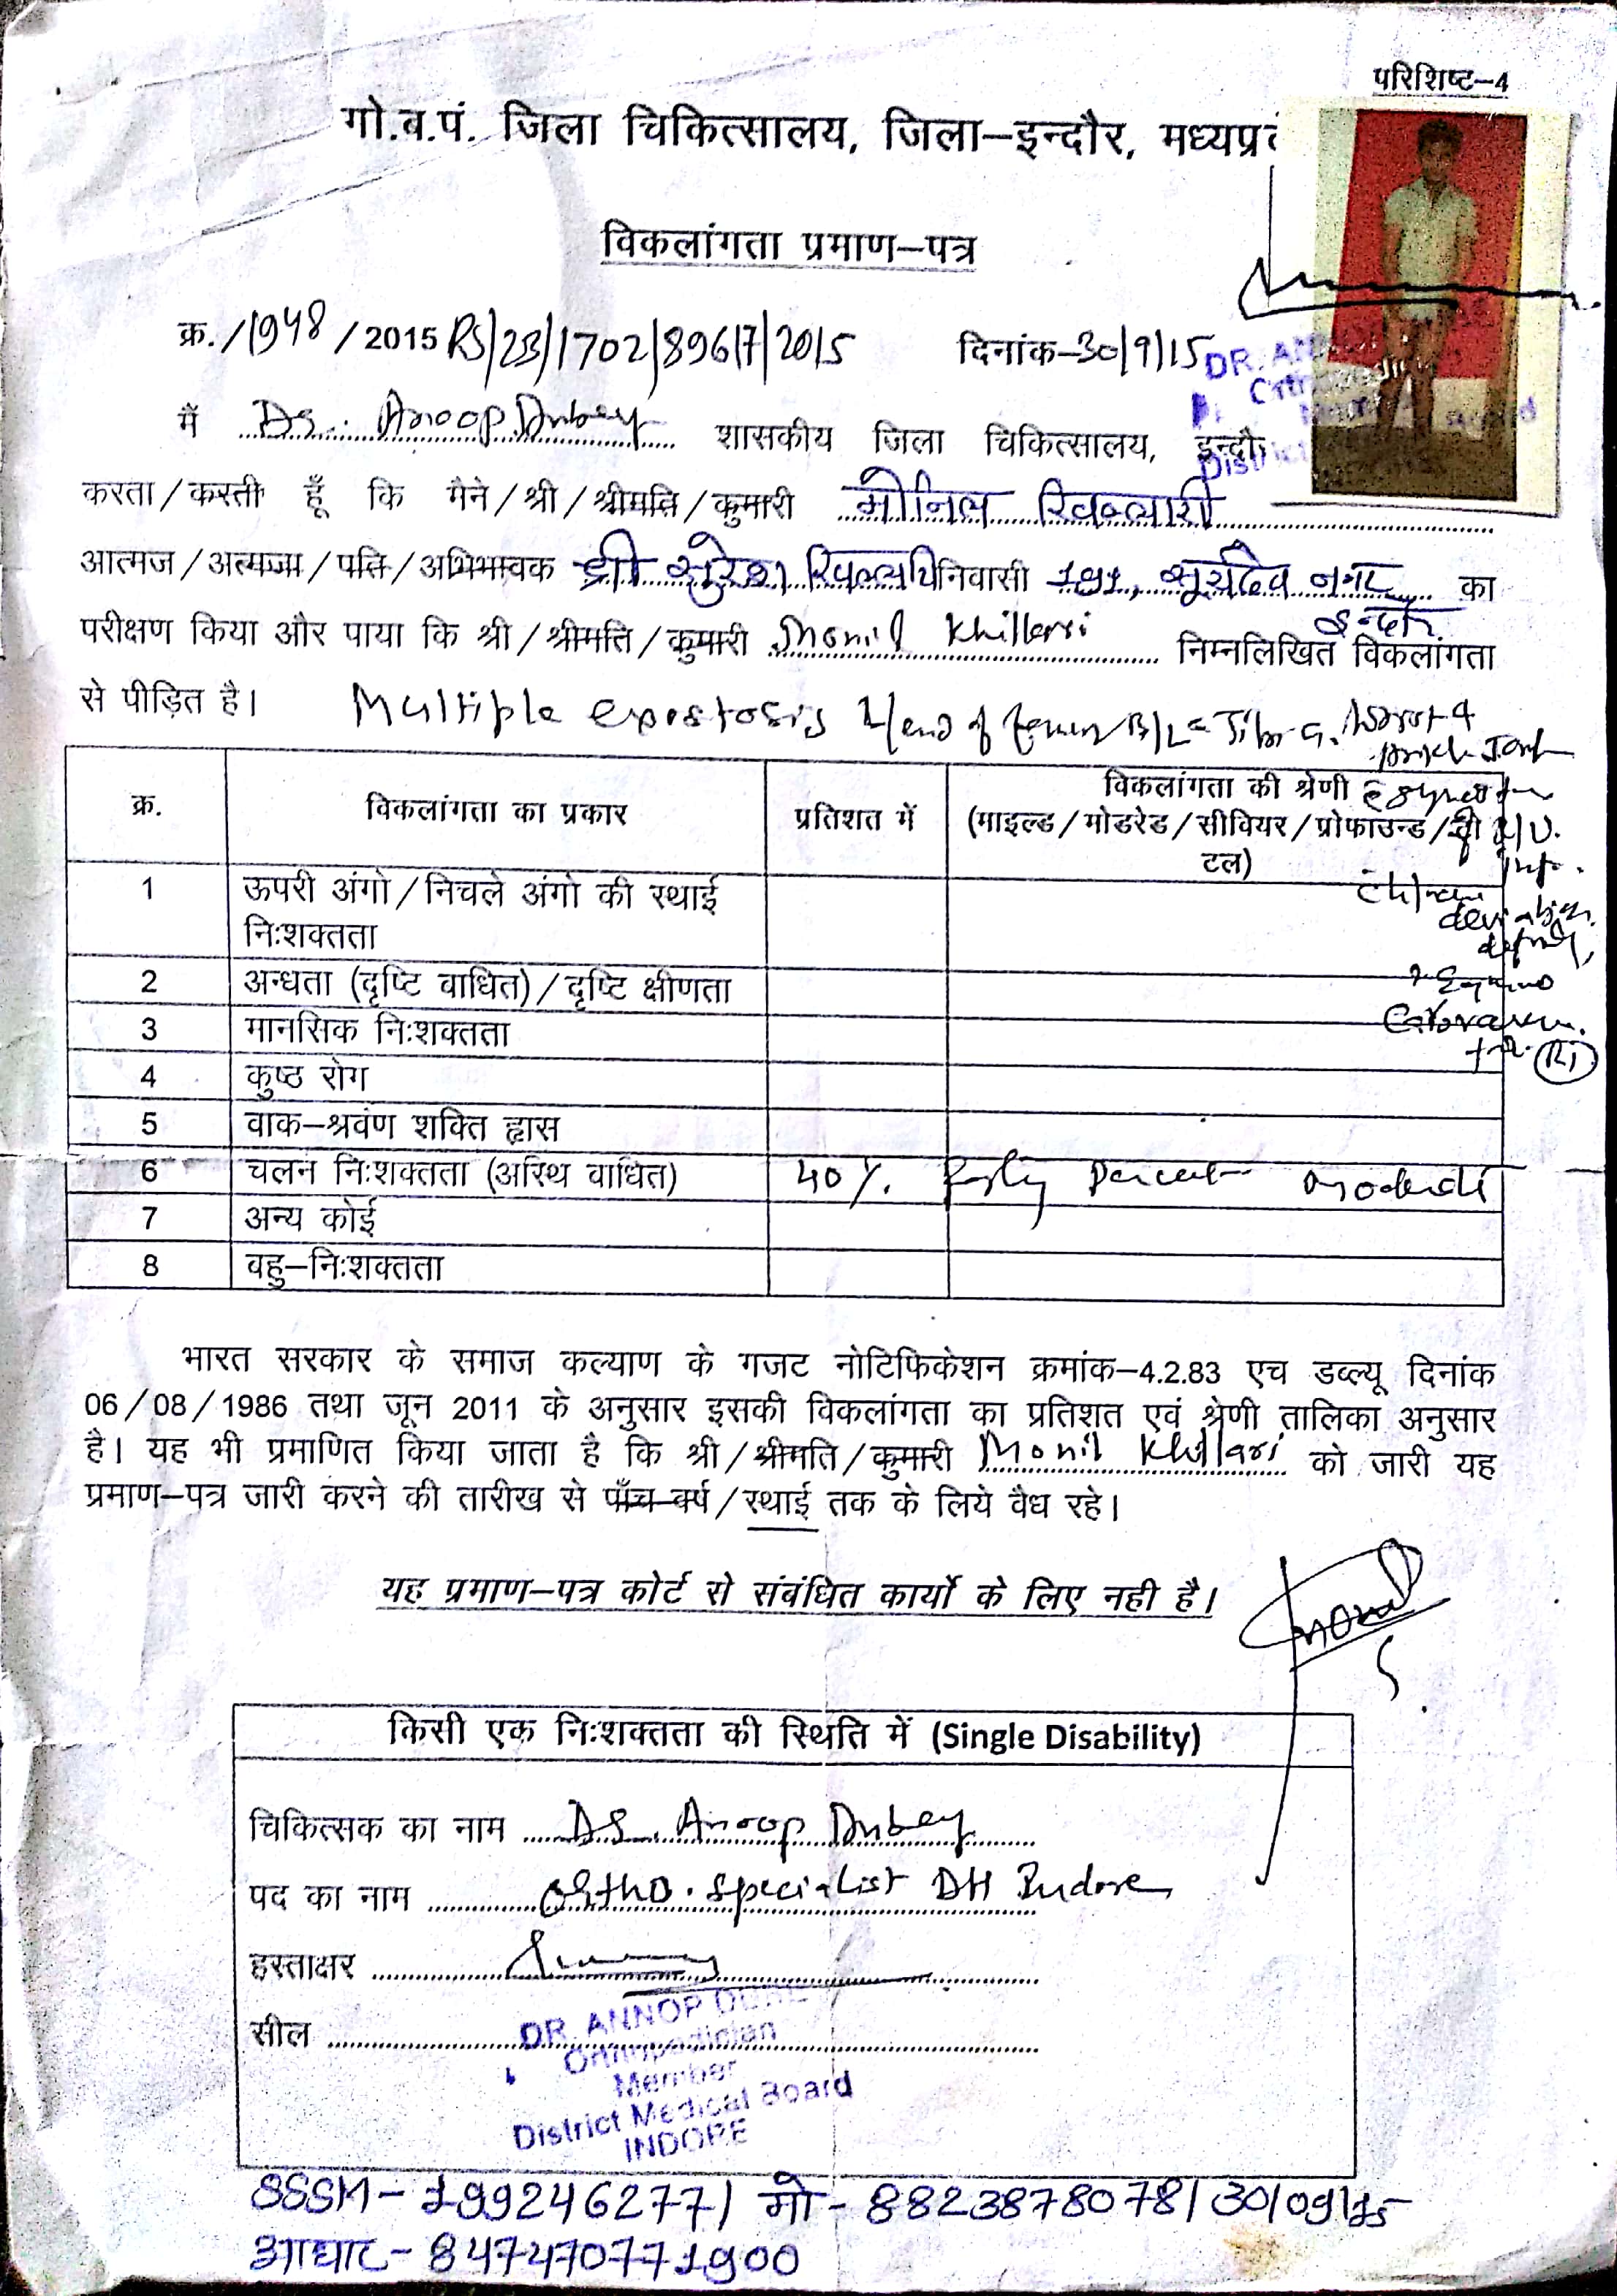 परिशिष्ट–4
गो.व.पं. जिला चिकित्सालय, जिला–इन्दौर, मध्यप्र
विकलांगता प्रमाण–पत्र
क्र./1948/2015 RS/23/1702/8967/2015 दिनांक–30/9/15
DR. AN
District
मैं Dr. Anoop Dubey शासकीय जिला चिकित्सालय, इन्दौर
करता/करती हूँ कि मैने/श्री/श्रीमति/कुमारी मोनिल खिल्लारी
आत्मज/अत्मजा/पति/अभिभावक श्री सुरेश खिल्लारी निवासी 191, सूर्यदेव नगर का
इन्दौर
परीक्षण किया और पाया कि श्री/श्रीमति/कुमारी Monil Khillari निम्नलिखित विकलांगता
से पीड़ित है। Multiple exostosis L/end of femur B/L Tibia
क्र. विकलांगता का प्रकार प्रतिशत में विकलांगता की श्रेणी (माइल्ड/मोडरेड/सीवियर/प्रोफाउन्ड/टो
टल)
1 ऊपरी अंगो/निचले अंगो की स्थाई
निःशक्तता
2 अन्धता (दृष्टि वाधित)/दृष्टि क्षीणता
3 मानसिक निःशक्तता
4 कुष्ठ रोग
5 वाक–श्रवंण शक्ति ह्वास
6 चलन निःशक्तता (अस्थि वाधित) 40%. Forty Percent moderate
7 अन्य कोई
8 वहु–निःशक्तता
भारत सरकार के समाज कल्याण के गजट नोटिफिकेशन क्रमांक–4.2.83 एच डव्ल्यू दिनांक
06/08/1986 तथा जून 2011 के अनुसार इसकी विकलांगता का प्रतिशत एवं श्रेणी तालिका अनुसार
है। यह भी प्रमाणित किया जाता है कि श्री/श्रीमति/कुमारी Monil Khillari को जारी यह
प्रमाण–पत्र जारी करने की तारीख से पाँच वर्ष/स्थाई तक के लिये वैध रहे।
यह प्रमाण–पत्र कोर्ट से संबंधित कार्यो के लिए नही है।
किसी एक निःशक्तता की स्थिति में (Single Disability)
चिकित्सक का नाम Dr. Anoop Dubey
पद का नाम Ortho. specialist DH Indore
हस्ताक्षर
सील
DR. ANNOP DUBE
Orthopedician
Member
District Medical Board
INDORE
SSSM - 199246277/ मो - 8823878078/ 30/09/15
आधार - 847470771900